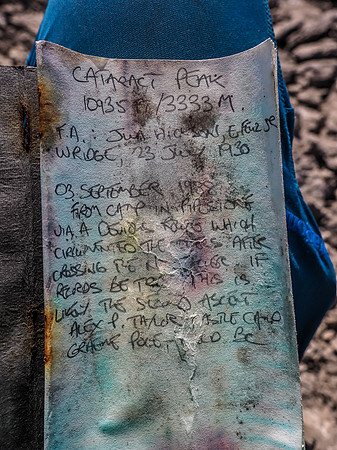 CATARACT PEAK
10935 FT/3333 M.
F.A.: JWA HICKSON, E. FEUZ JR
WRIDGE, 23 JULY 1930
03 SEPTEMBER
FROM CAMP IN
VIA A DEVIOUS ROUTE WHICH
CIRCUMVENTED THE AFTER
CROSSING THE IF
RECORDS BE THIS IS
LIKELY THE SECOND ASCENT
ALEX P. TAYLOR
GRAEME BC